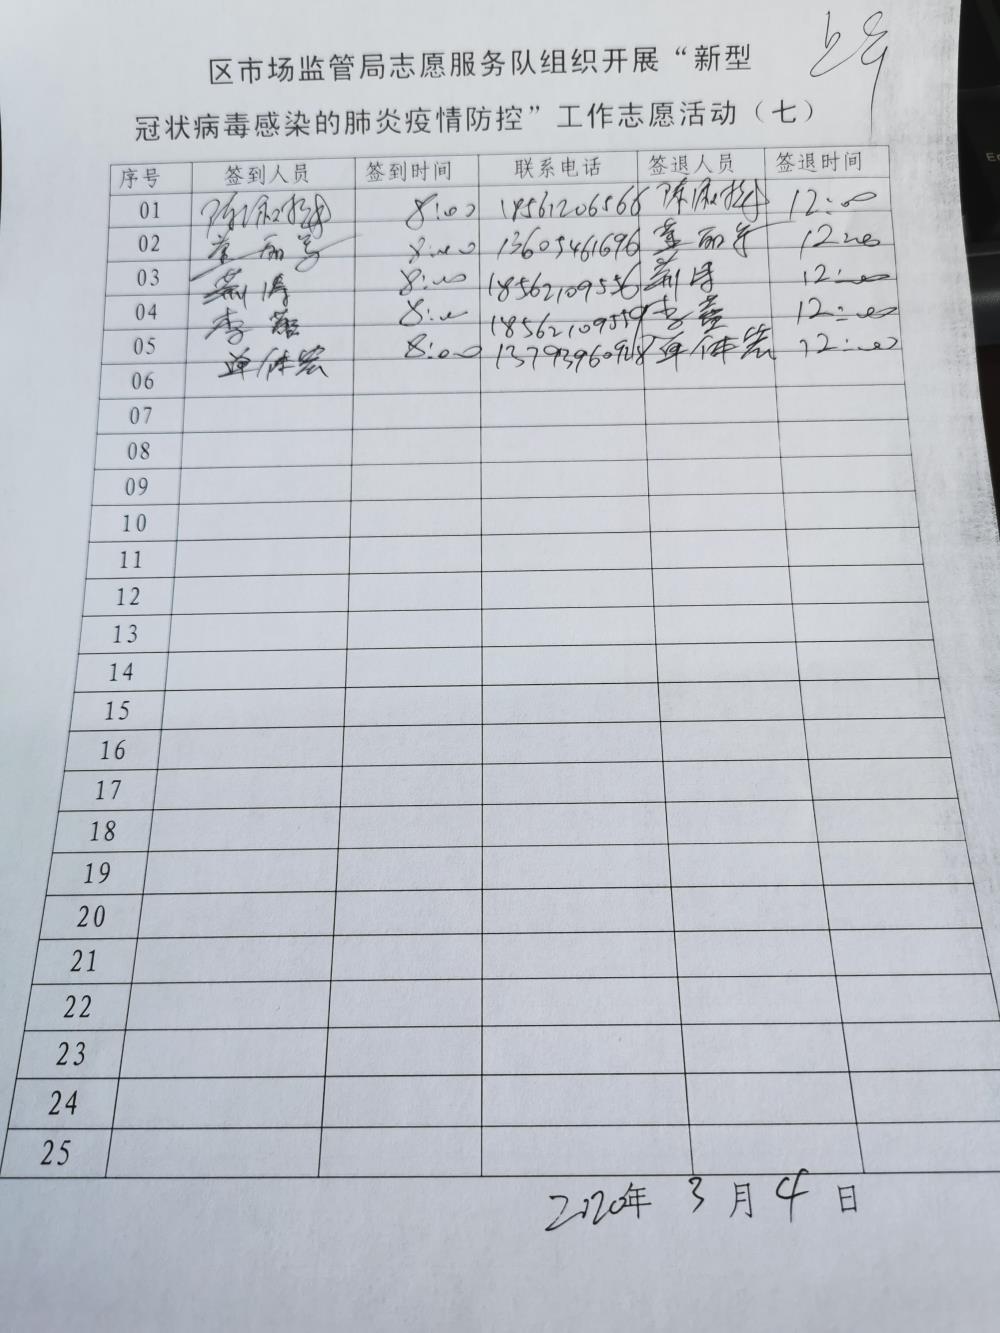 上午
区市场监管局志愿服务队组织开展“新型
冠状病毒感染的肺炎疫情防控”工作志愿活动（七）
序号 签到人员 签到时间 联系电话 签退人员 签退时间
01 陈淑梅 8:00 18561206566 陈淑梅 12:00
02 董丽芳 8:00 13605461696 董丽芳 12:00
03 荆涛 8:00 18562109556 荆涛 12:00
04 李 8:00 18562109559 李 12:00
05 单体宏 8:00 13793960928 单体宏 12:00
06
07
08
09
10
11
12
13
14
15
16
17
18
19
20
21
22
23
24
25
2020年 3 月 4 日